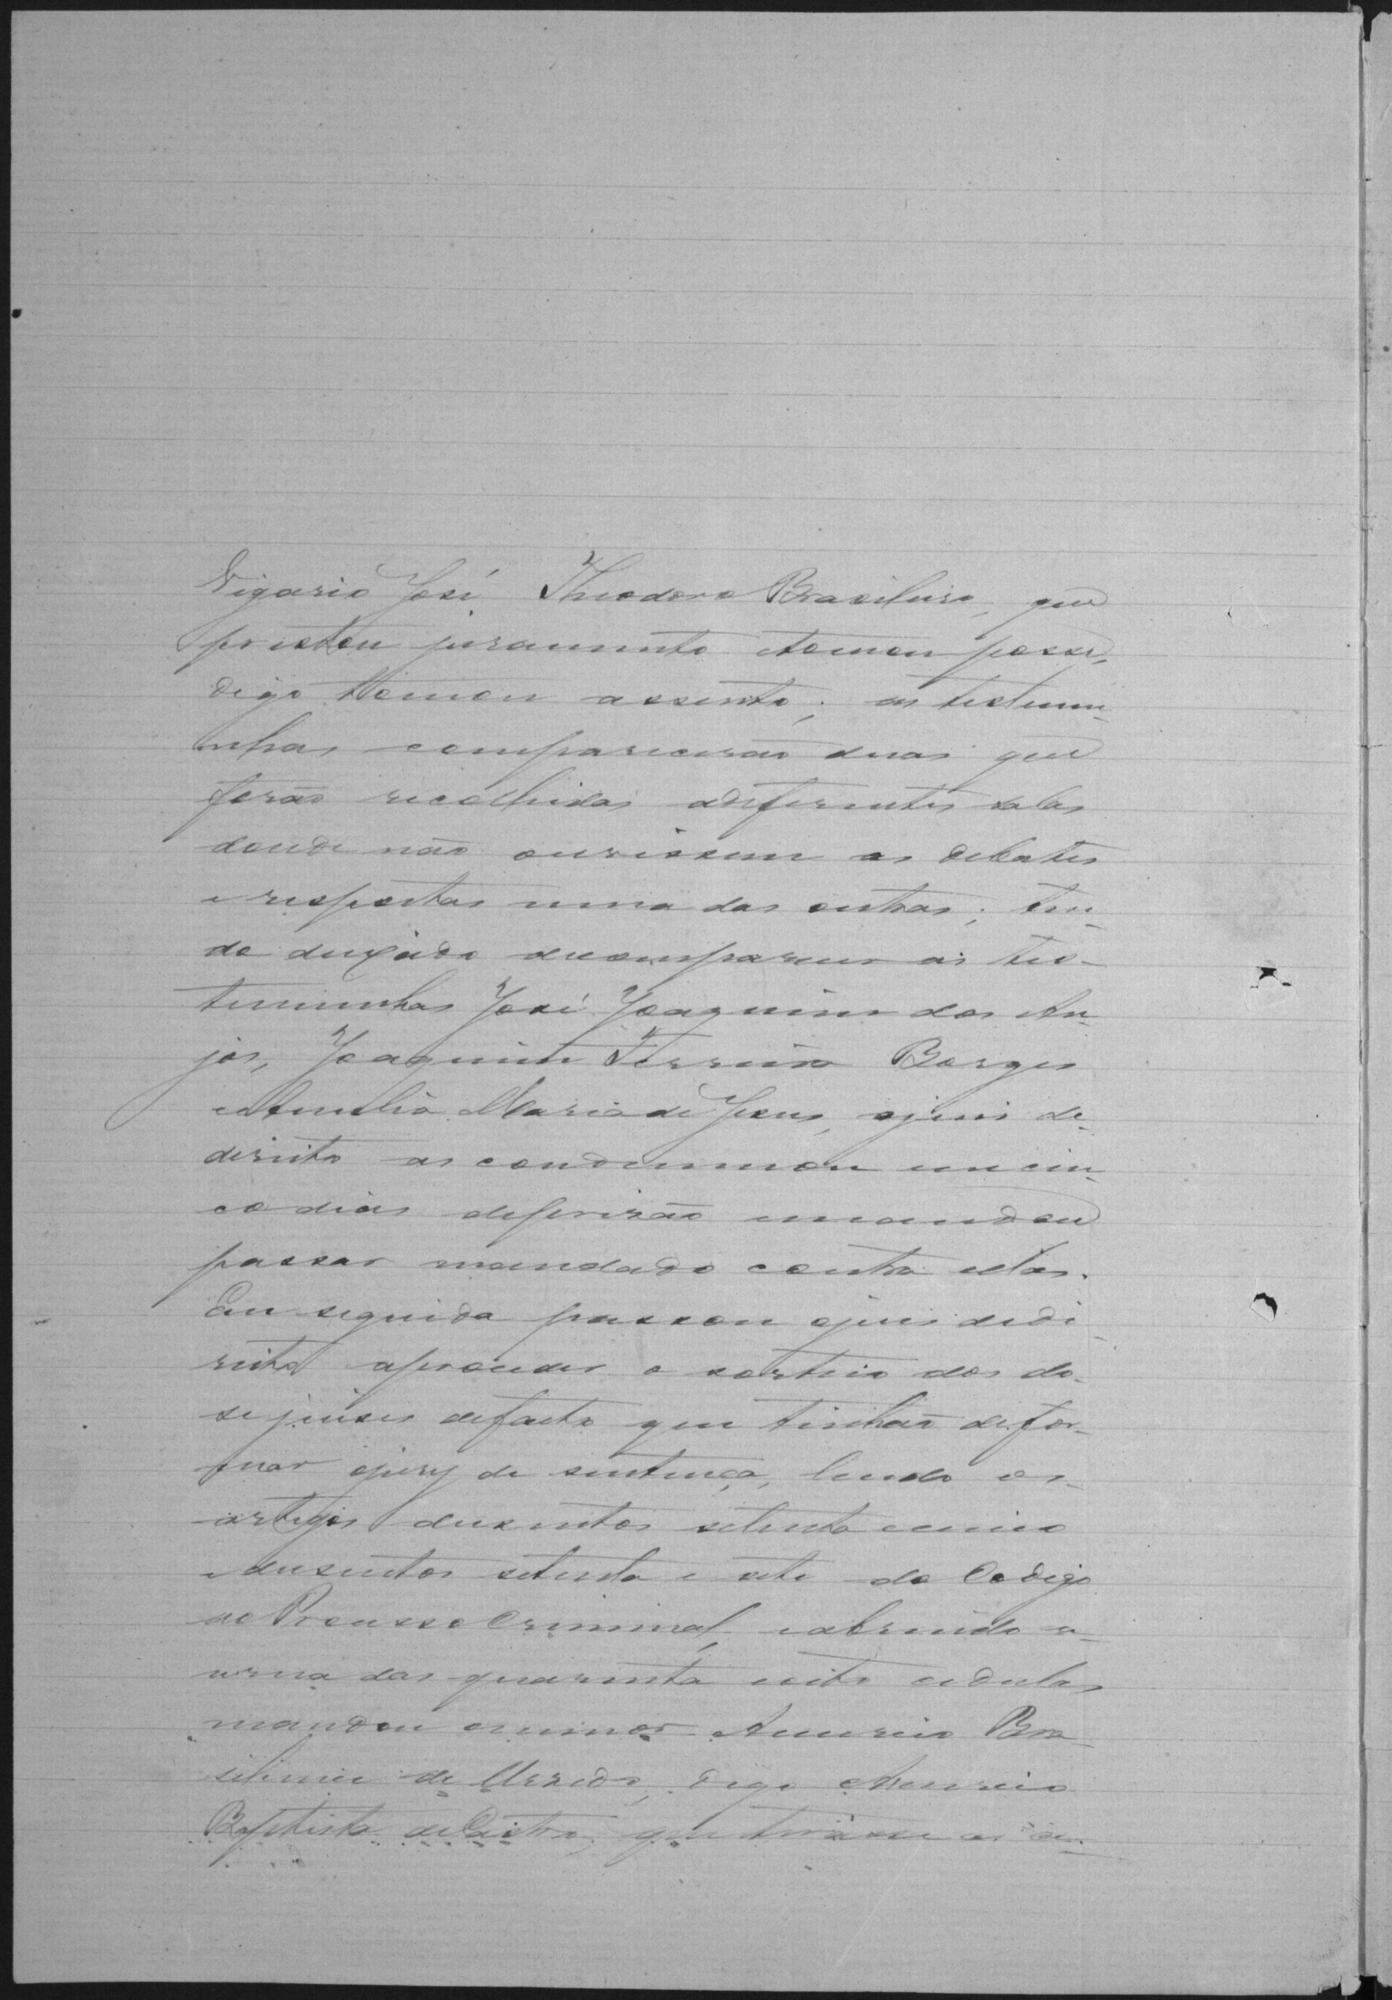 Vigario José Theodoro Brasileiro, que
prestou juramento etomou posse,
digo tomou assento; as testemu-
nhas comparecerão duas que
forão recolhidas adiferentes salas
donde não ouvissem os debates
e respostas uma das outras; ten-
do deixado decomparecer as tes-
temunhas José Joaquim dos An-
jos, Joaquim Ferreira Borges
Maria de Jesus, ojuis de
dereito as condemnou em cin-
co dias deprizão emandou
passar mandado contra ellas.
Em seguida passou ojuis dedi-
reito aproceder o sorteio dos do-
se juises defacto que tinhão defor-
mar ojury de sentença, lendo os
artigos dusentos setenta e cinco
edusentos setenta e sete do Codigo
do Processo Criminal, eabrindo a
urna das quarenta eoito cedulas
mandou o menor Bra-
de digo
Baptista de Castro, que tirasse as ce-